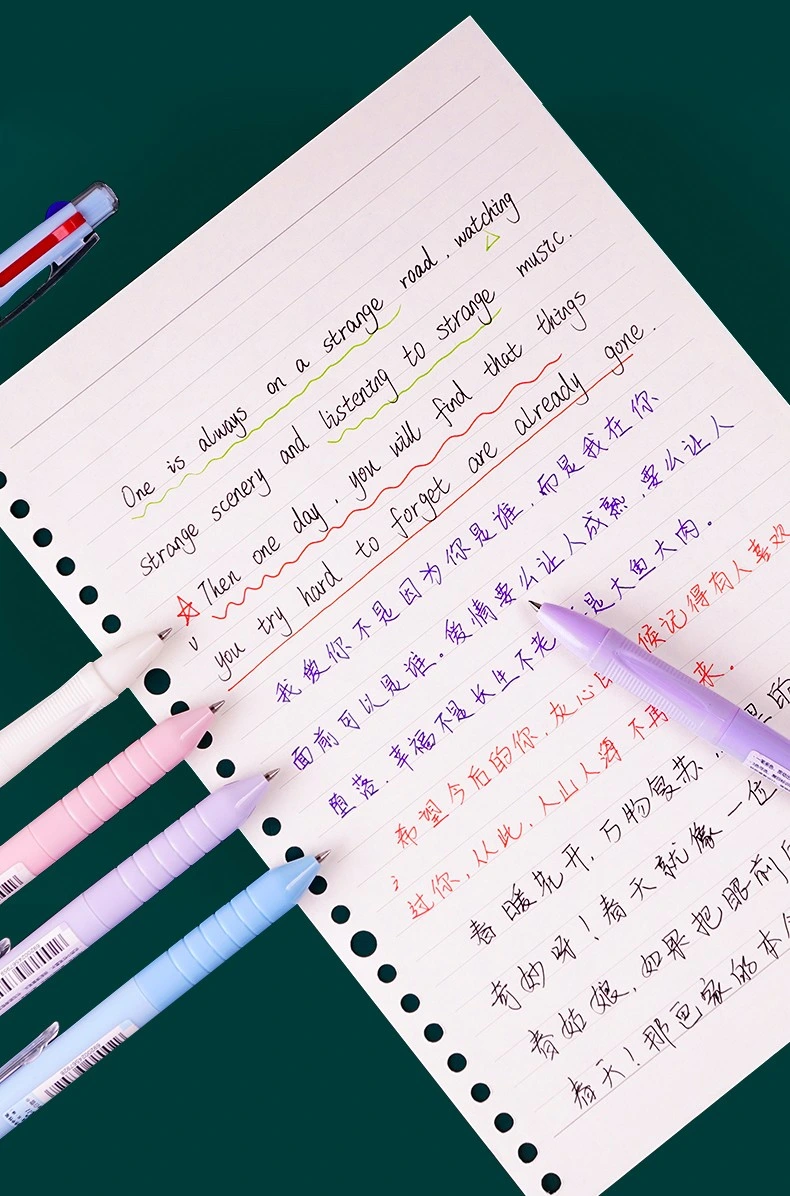 One is always on a strange road, watching
strange scenery and listening to strange music.
Then one day, you will find that things
you try hard to forget are already gone.
我爱你不是因为你是谁,而是我在你
面前可以是谁。爱情要么让人成熟,要么让人
堕落,幸福不是长生不老 是大鱼大肉。
希望今后的你,灰心 候记得有人喜欢
过你,从此,人山人海 不再 来。
春暖花开,万物复苏
奇妙呀!春天就像一位
春姑娘,如果把眼前
春天!那画家的本